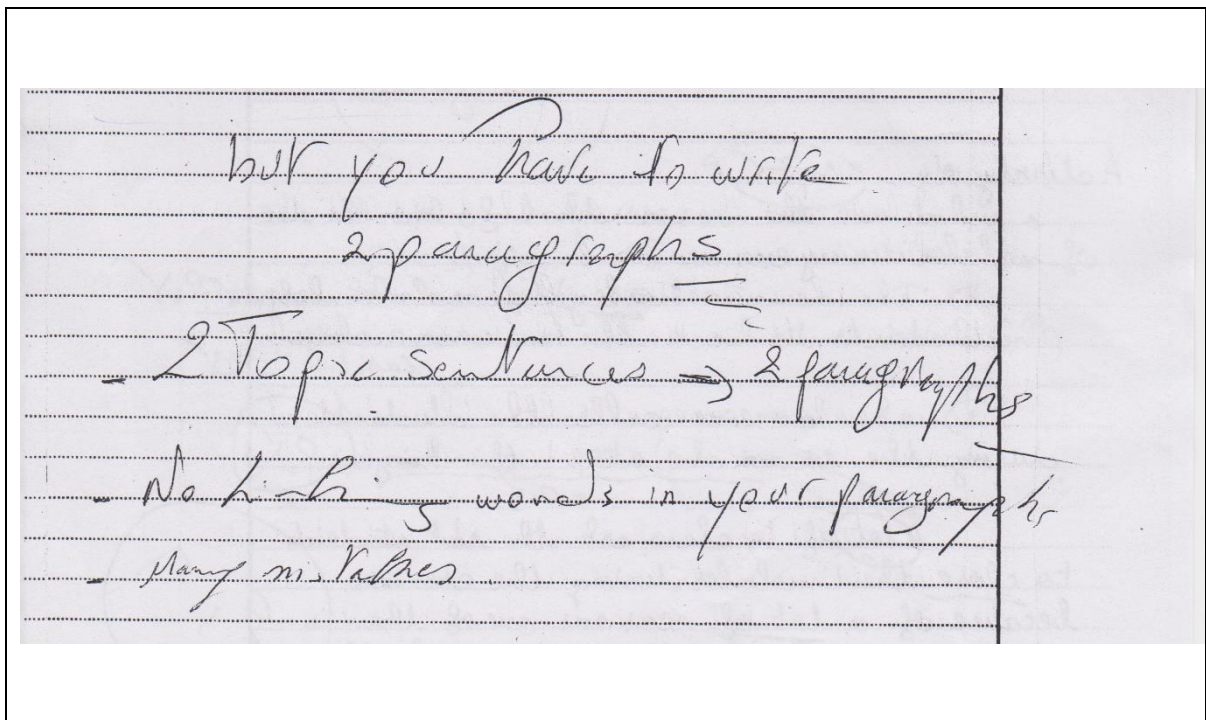 but you have to write
2 paragraphs
- 2 Topic sentences → 2 paragraphs
- No linking words in your paragraph
- Many mistakes